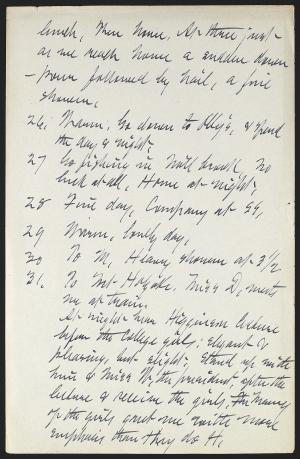 lunch, then home, At three just
as we reach home a sudden down
-pour followed by hail, a fine
shower,
26, Warm, Go down to Olly's, & spend
the day & night,
27 Go fishing in Mill brook, No
luck at all, Home at night,
28 Fine day, Company at SS,
29 Warm, lovely day,
30 To M, Heavy shower at 3 1/2
31, To Mt- Holyoke, Miss D, meets
me at train,
At night hear Higginson lecture
before the College girls; elegant &
pleasing, but slight, Stand up with
him & Miss W, the president, after the
lecture & receive the girls, Many
of the girls greet me with more
emphasis than they do H,